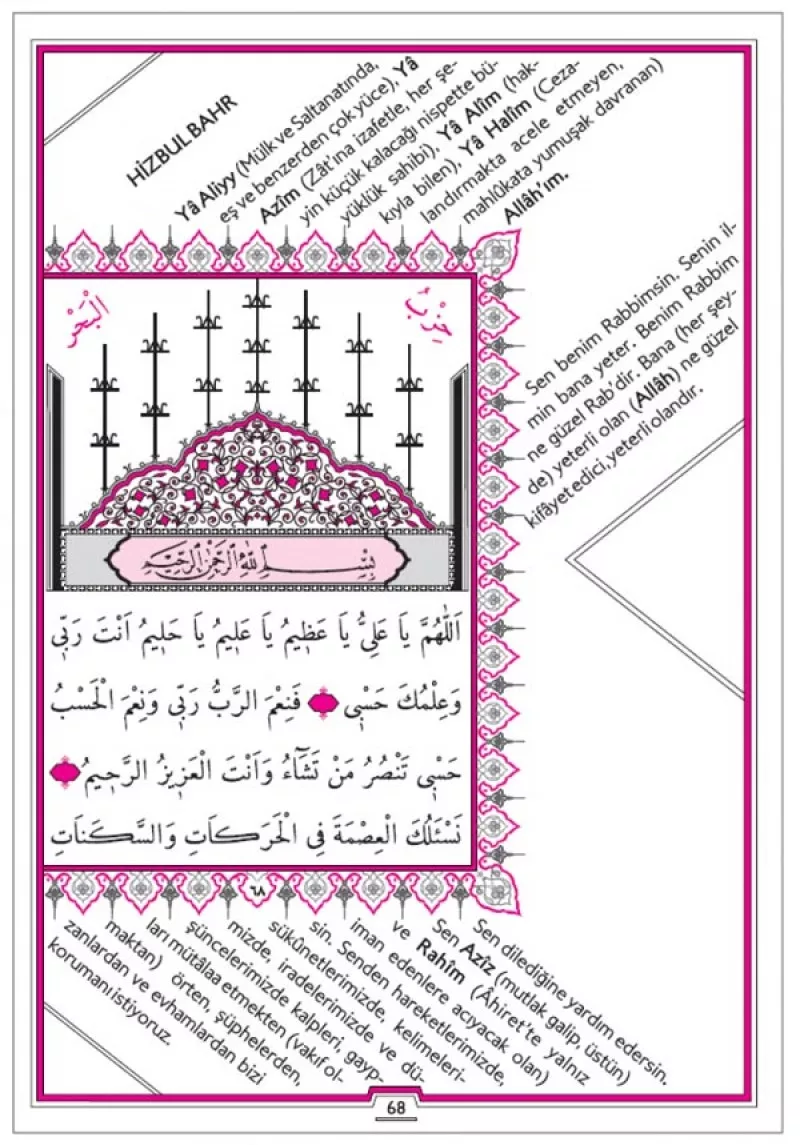 HİZBUL BAHR
Yâ Aliyy (Mülk ve Saltanatında,
eş ve benzerden çok yüce), Yâ
Azîm (Zât'ına izafetle, her şe-
yin küçük kalacağı nispette bü-
yüklük sahibi), Yâ Alîm (hak-
kıyla bilen), Yâ Halîm (Ceza-
landırmakta acele etmeyen,
mahlûkata yumuşak davranan)
Allâh'ım.
Sen benim Rabbimsin. Senin il-
min bana yeter. Benim Rabbim
ne güzel Rab'dir. Bana (her şey-
de) yeterli olan (Allâh) ne güzel
kifâyet edici, yeterli olandır.
حِزْبُ الْبَحْرِ
بِسْمِ اللّٰهِ الرَّحْمٰنِ الرَّحِيمِ
اَللّٰهُمَّ يَا عَلِىُّ يَا عَظِيمُ يَا عَلِيمُ يَا حَلِيمُ اَنْتَ رَبِّى
وَعِلْمُكَ حَسْبِى فَنِعْمَ الرَّبُّ رَبِّى وَنِعْمَ الْحَسْبُ
حَسْبِى تَنْصُرُ مَنْ تَشَٓاءُ وَاَنْتَ الْعَزِيزُ الرَّحِيمُ
نَسْئَلُكَ الْعِصْمَةَ فِى الْحَرَكَاتِ وَالسَّكَنَاتِ
٦٨
Sen dilediğine yardım edersin.
Sen Azîz (mutlak galip, üstün)
ve Rahîm (Âhiret'te yalnız
iman edenlere acıyacak olan)
sin. Senden hareketlerimizde,
sükûnetlerimizde, kelimeleri-
mizde, iradelerimizde ve dü-
şüncelerimizde kalpleri, gayp-
ları mütâlaa etmekten (vakıf ol-
maktan) örten, şüphelerden,
zanlardan ve evhamlardan bizi
korumanı istiyoruz.
68